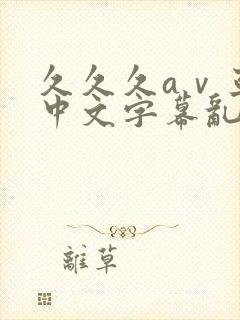 久久久aⅴ
中文字幕亂
離草